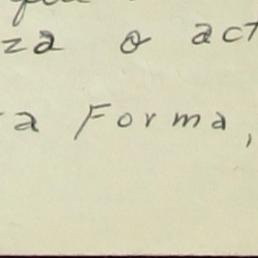 za o act
a Forma,